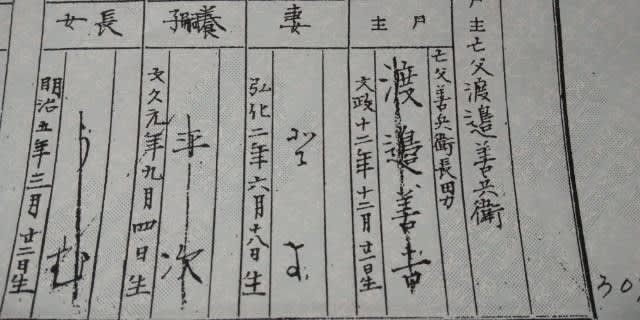 戸主亡父渡邉善兵衛
戸主
亡父善兵衛長男
渡邉善吉
文政十二年十二月廿一日生
妻
弘化二年六月十八日生
養嗣子
平次
文久元年九月四日生
長女
明治五年三月廿二日生